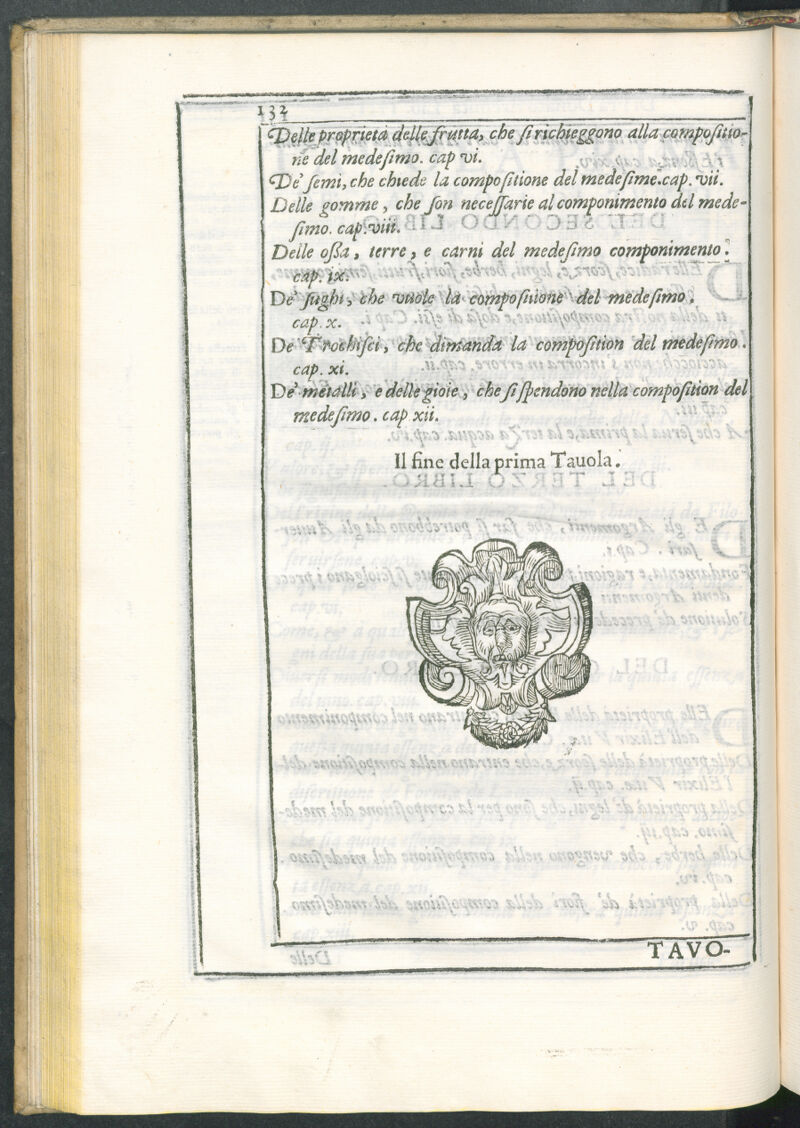 132
Delle proprietà delle frutta, che ſi richieggono alla compoſitio-
ne del medeſimo. cap vi.
De' ſemi, che chiede la compoſitione del medeſime.cap. vii.
Delle gomme, che ſon neceſſarie al componimento del mede-
ſimo. cap. viii.
Delle oſſa, terre, e carni del medeſimo componimento.
cap. ix.
De' ſughi, che vuole la compoſitione del medeſimo.
cap. x.
De Trochiſci, che dimanda la compoſition del medeſimo.
cap. xi.
De' metalli, e delle gioie, che ſi ſpendono nella compoſition del
medeſimo. cap xii.
Il fine della prima Tauola.
TAVO-